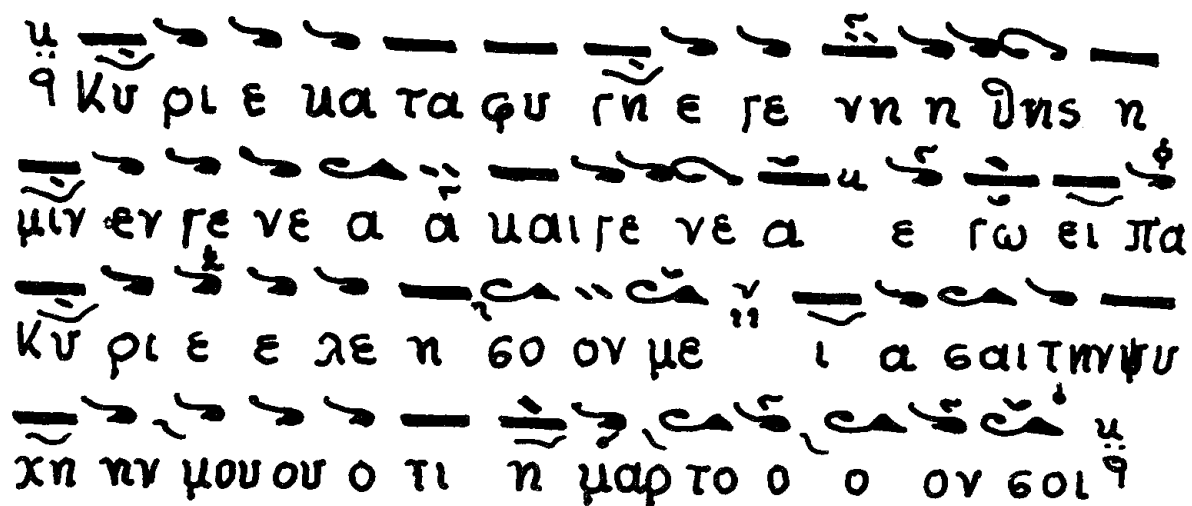 Κυ ρι ε κα τα φυ γη ε γε νη η θης η
μιν εν γε νε α α και γε νε α ε γω ει πα
Κυ ρι ε ε λε η σο ον με ι α σαι την ψυ
χη ην μου ου ο τι η μαρ το ο ο ον σοι